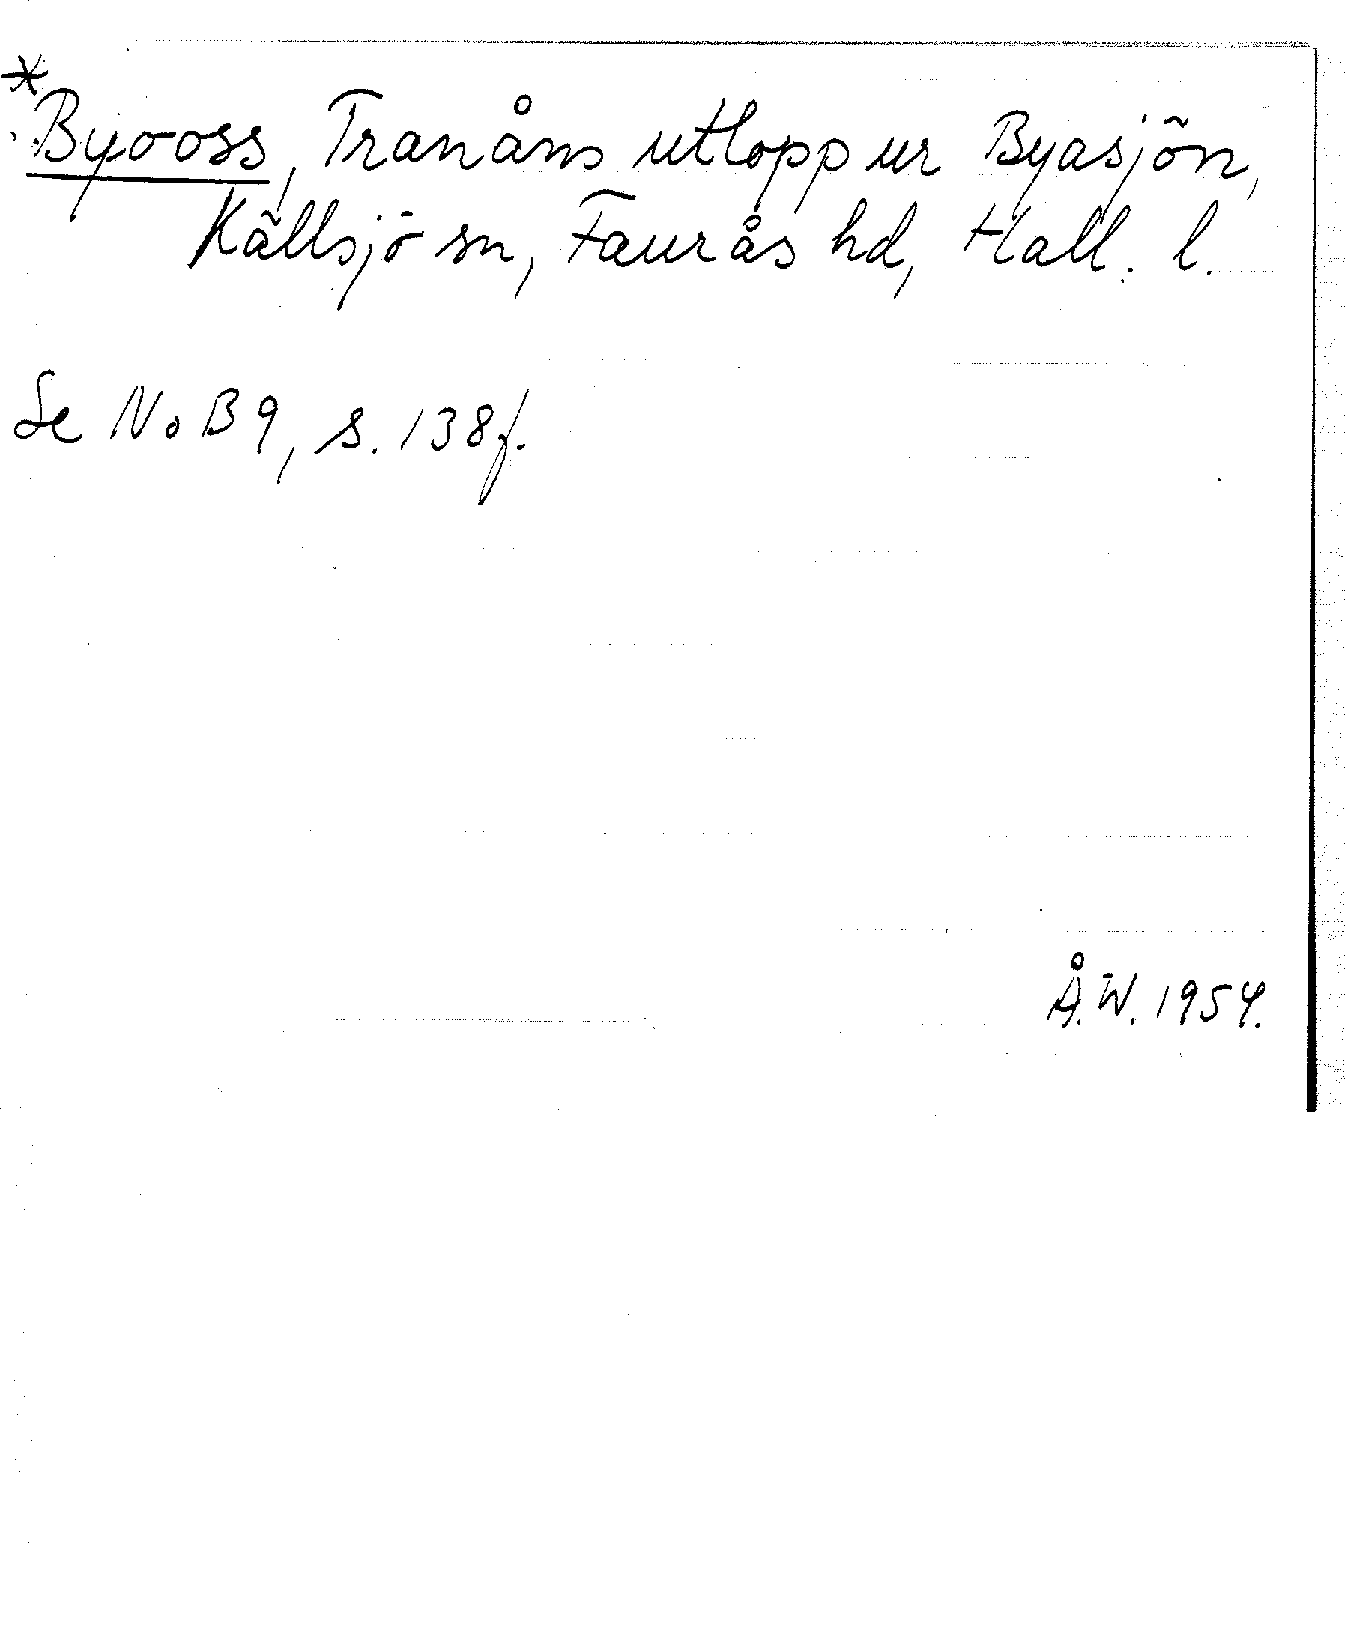 *Byooss, Tranåns utlopp ur Byasjön,
Källsjö sn, Faurås hd, Hall. l.
Se NoB 9, s. 138f.
Å.W. 1954.